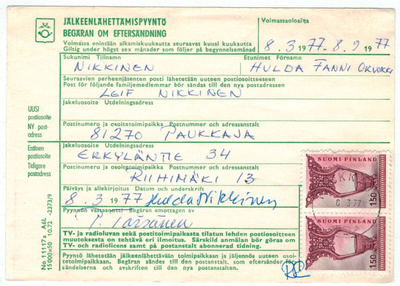 JÄLKEENLÄHETTÄMISPYYNTÖ
BEGÄRAN OM EFTERSÄNDNING
Voimassa enintään alkamiskuukautta seuraavat kuusi kuukautta
Giltig under högst sex månader som följer på begynnelsemånad
Voimassaoloaika
8.3 1977-8.9 1977
Sukunimi Tillnamn
Etunimet Förnamn
NIKKINEN HULDA FANNI ORVOKKI
Seuraavien perheenjäsenten posti lähetetään uuteen postiosoitteeseen
Post för följande familjemedlemmar bör sändas till den nya postadressen
LEIF NIKKINEN
UUSI postiosoite
NY postadress
Jakeluosoite Utdelningsadress
Postinumero ja osoitetoimipaikka Postnummer och adressanstalt
81270 PAUKKAJA
Entinen postiosoite
Tidigare postadress
Jakeluosoite Utdelningsadress
ERKYLÄNTIE 34
Postinumero ja osoitetoimipaikka Postnummer och adressanstalt
RIIHIMÄKI 13
Päiväys ja allekirjoitus Datum och underskrift
8.3 1977 Hulda Nikkinen
Pyynnön vastaanotti Begäran emottagen av
TV- ja radioluvan sekä postitoimipaikasta tilatun lehden postiosoitteen
muutoksesta on tehtävä eri ilmoitus. Särskild anmälan bör göras om
TV- och radiolicens samt på postanstalt abonnerad tidning.
Pyyntö lähetetään jälkeenlähettävään toimipaikkaan ja
SUOMI FINLAND
1,50
SUOMI FINLAND
1,50